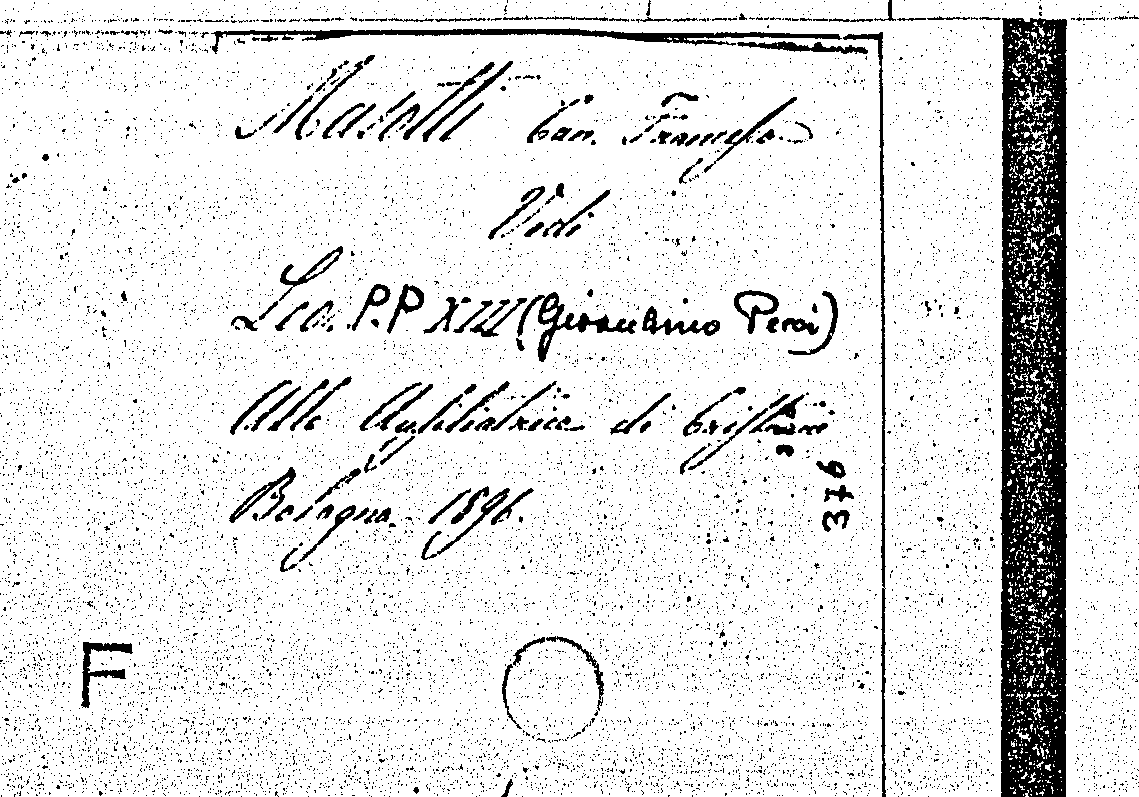 Masotti Can. Francesco
Vedi
Leo P.P. XIII (Gioacchino Pecci)
Alle Ausiliatrice di Cristiani
Bologna 1896.
376
F